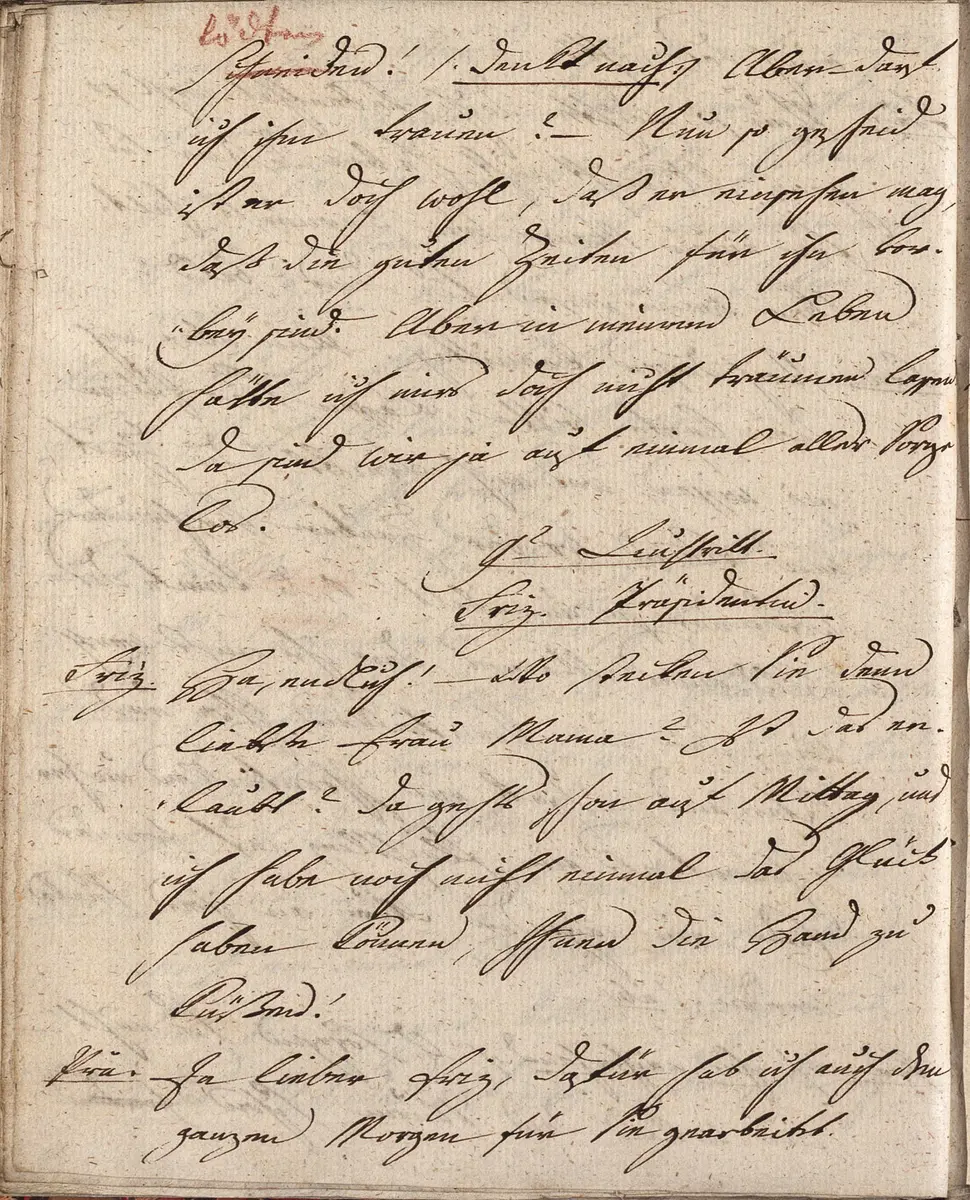 tödten
schneiden! /: denkt nach :/ Aber darf
ich ihm trauen? — Nun so gescheid
ist er doch wohl, daß er einsehen mag,
daß die guten Zeiten für ihn vor-
bey sind. Aber in meinem Leben
hätte ich mirs doch nicht träumen lassen
da sind wir ja auf einmal aller Sorge
los.
9r Auftritt.
Friz. Präsidentin.
Friz. Ha, endlich! — Wo stecken Sie denn
liebste Frau Mama? Ist das er-
laubt? Da gehts schon auf Mittag, und
ich habe noch nicht einmal das Glück
haben können, Ihnen die Hand zu
küßen!
Prä. Ja lieber Friz, dafür hab ich auch den
ganzen Morgen für Sie gearbeitet.